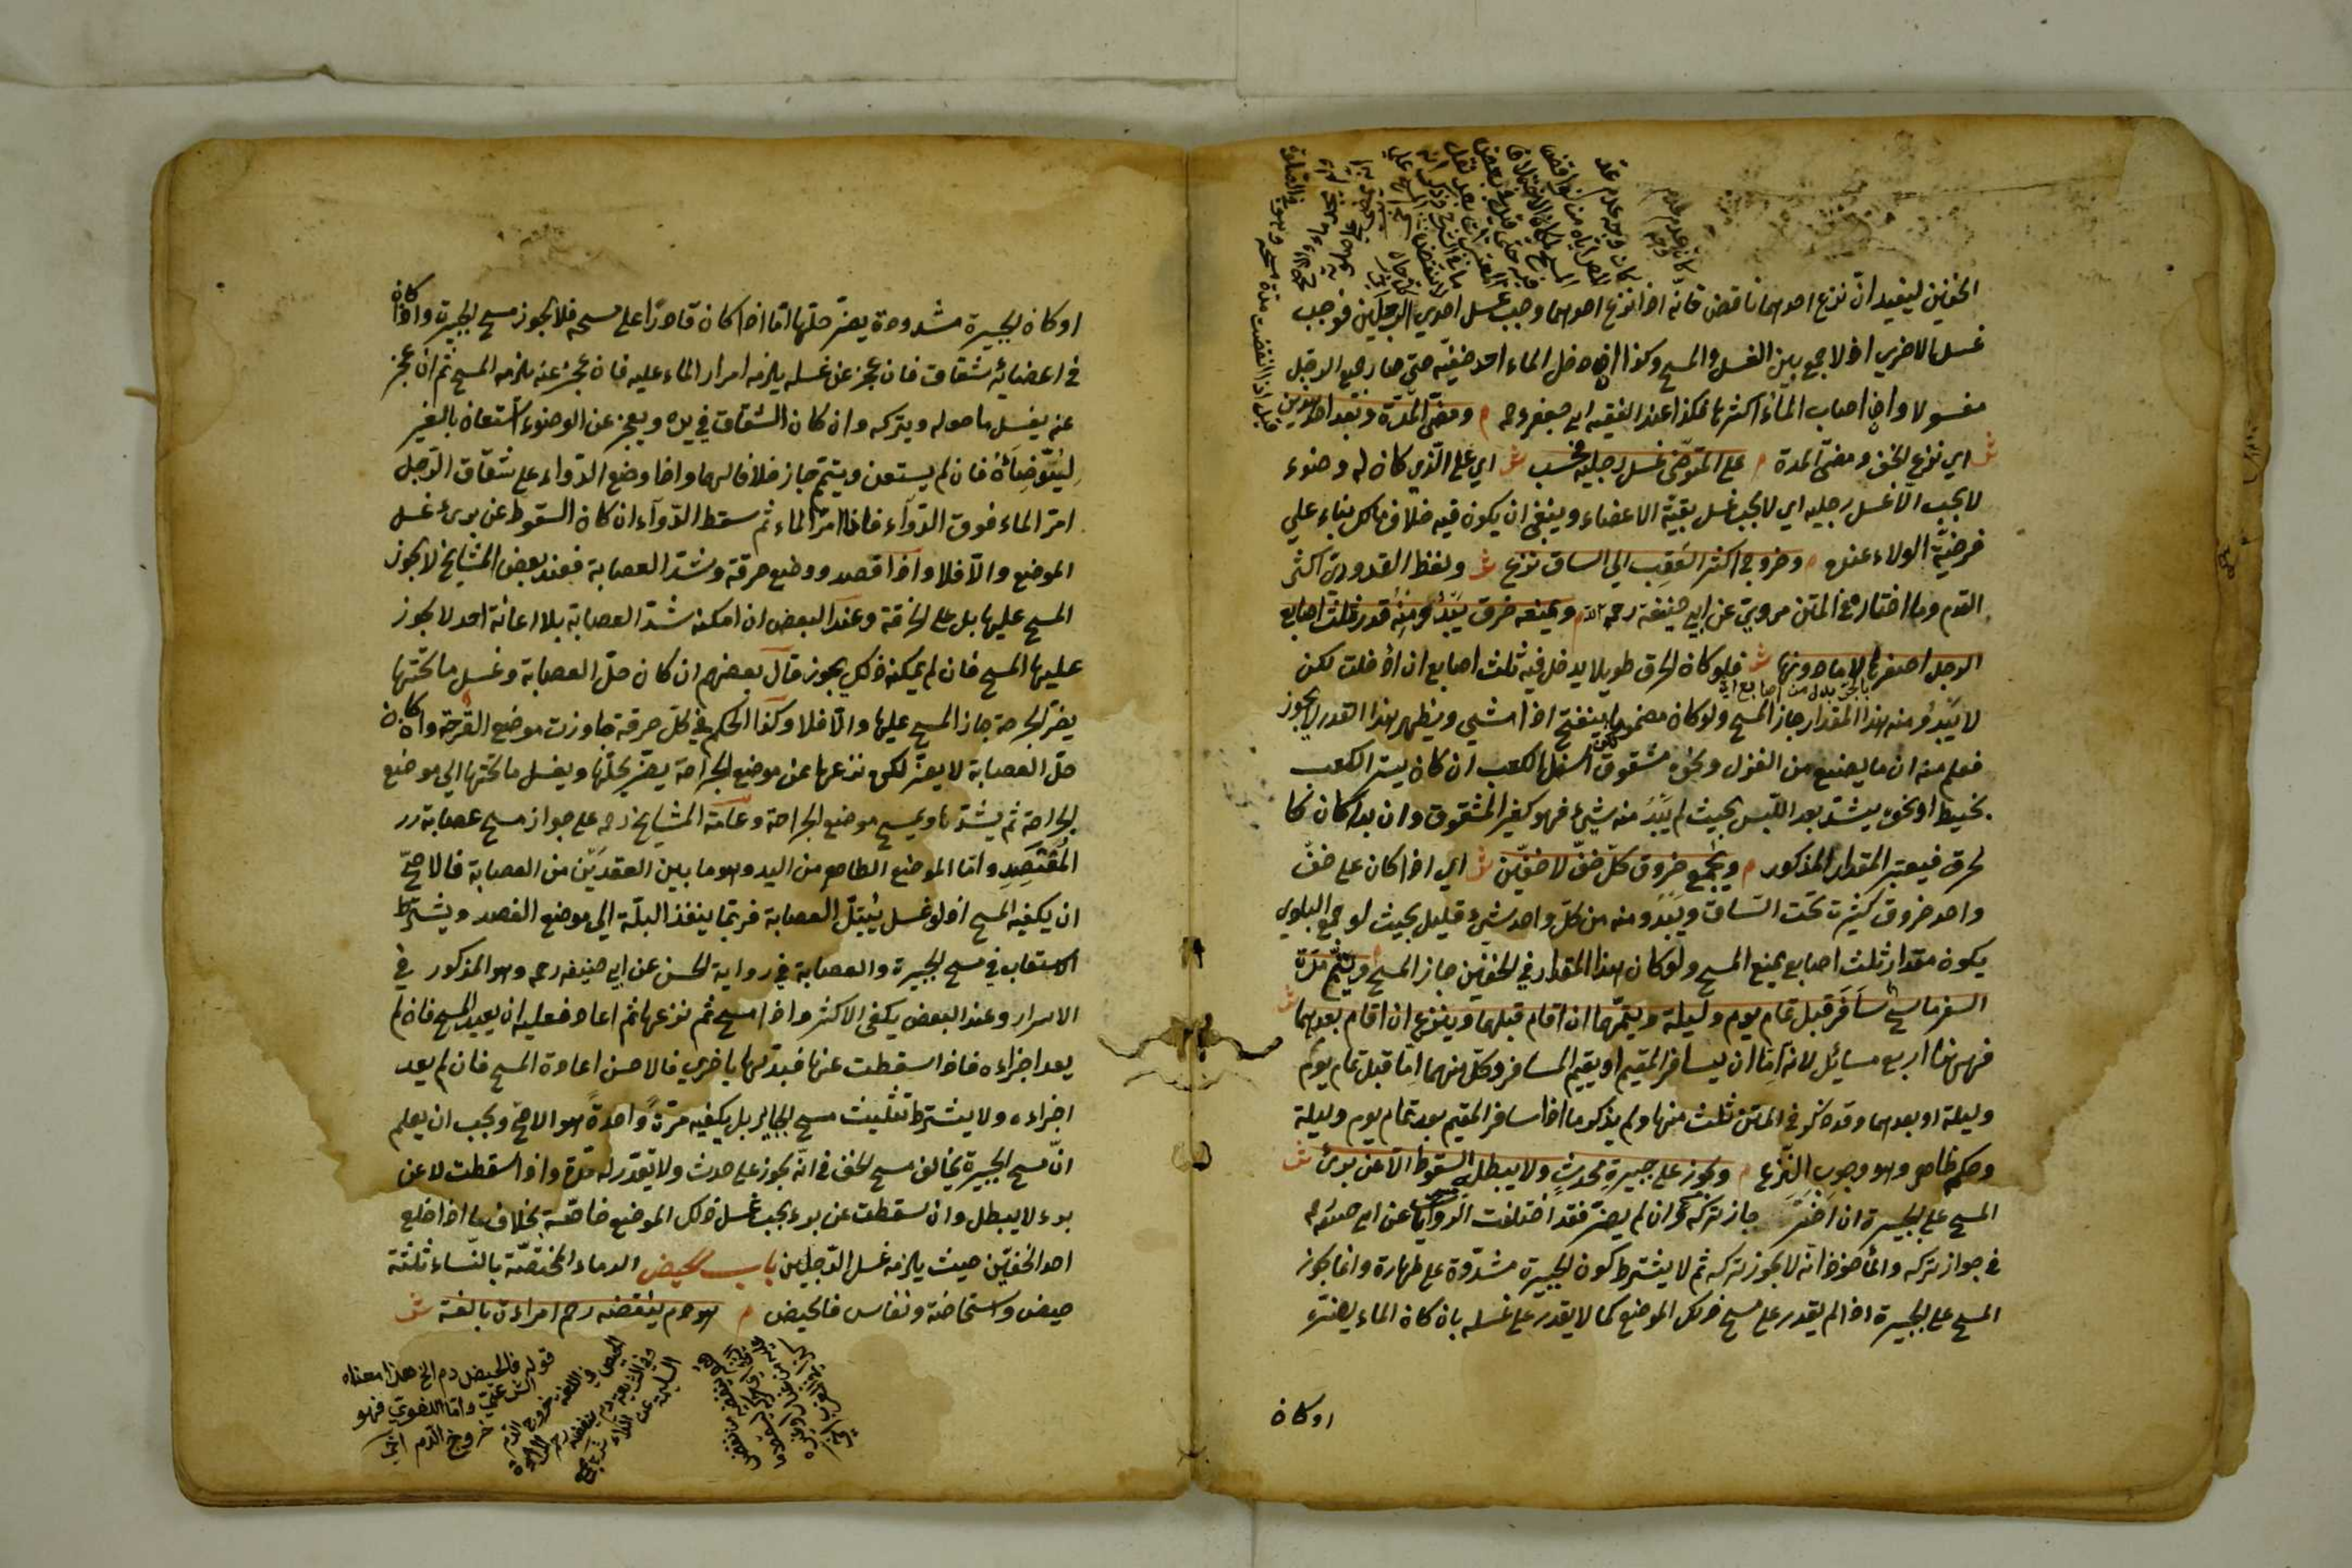 الخفين ليفيد انّ نزع احدهما ناقض فانّه اذا نزع احدهما وجب غسل احدي الرجلين فوجب
غسل الاخري اذ لا جمع بين الغسل والمسح وكذا اذا دخل الماء احد خفيّه حتي صار جميع الرجل
مغسولا وان اصاب الماء اكثرها فكذا عند الفقيه ابي جعفر رحه م ومضيّ المدّة وبعد احد هذين
ش اي نزع الخف ومضيّ المدة م علي المتوضّئ غسل رجليه فحسب ش اي علي الّذي كان له وضوء
لا يجب الّا غسل رجليه اي لا يجب غسل بقيّة الاعضاء وينبغي ان يكون فيه خلاف مالك بناء علي
فرضيّة الولاء عنده م وخروج اكثر العَقِب الي الساق نزع ش ولفظ القدوريّ اكثر
القدم وما اختاره في المتن مرويّ عن ابي حنيفة رحمه الله م ويمنعه خرق يَبْدُو مِنْهُ قدر ثلث اصابع
الرجل اصغرها لا ما دونها ش فلو كان الخرق طويلا يدخل فيه ثلث اصابع ان ادخلت لكن
لا يَبْدُو منه هذا المقدار جاز المسح ولو كان مضموما ينفتح اذا مشي ويظهر هذا القدر لا يجوز
فعلم منه ان ما يصنع من الغزل ونحوه مشقوق اسفل الكعب ان كان يستر الكعب
بخيط او نحوه يشدّ بعد اللّبس بحيث لم يَبْدُ منه شيء فهو كغير المشقوق وان بدا كان كا
لخرق فيعتبر المقدار المذكور م ويُجمع خروق كلّ خفّ لا خفّين ش اي اذا كان علي خفّ
واحد خروق كثيرة تحت السّاق ويَبْدُو منه من كلّ واحد شيء قليل بحيث لو جمع البادي
يكون مقدار ثلث اصابع يمنع المسح ولو كان هذا المقدار في الخفين جاز المسح م ويتمّ مدّة
السفر ماسح سَافَرَ قبل تمام يوم وليلة ويتمّهما ان اقام قبلهما وينزع ان اقام بعدهما ش
فهي هنا اربع مسائل لانه امّا ان يسافر المقيم او يقيم المسافر وكلّ منهما امّا قبل تمام يوم
وليلة او بعدهما وقد ذكر في المتن ثلث منها ولم يذكر ما اذا سافر المقيم بعد تمام يوم وليلة
وحكمه ظاهر وهو وجوب النّزع م ويجوز علي جبيرةِ مُحدثٍ ولا يبطله السقوط الّا عن برئ ش
المسح علي الجبيرة ان اضرّ جاز تركه وان لم يضرّ فقد اختلفت الروايات عن ابي حنيفه
في جواز تركه والمأخوذ انّه لا يجوز تركه ثم لا يشترط كون الجبيرة مشدّدة علي طهارة وانما يجوز
المسح علي الجبيرة اذا لم يقدر علي مسح ذلك الموضع كما لا يقدر علي غسله بان كان الماء يضرّه
او كان
او كان الجبيرة مشدودة يضرّ حلّها امّا اذا كان قادرًا علي مسحه فلا يجوز مسح الجبيرة واذا كان
في اعضائه شقاق فان عجز عن غسله يلزمه امرار الماء عليه فان عجز عنه يلزمه المسح ثم ان عجز
عنه يغسل ما حوله ويتركه وان كان الشقاق في يده ويعجز عن الوضوء استعان بالغير
لِيُتَوَضِّأَهُ فان لم يستعن ويتيمّم جاز خلافا لهما واذا وضع الدّواء علي شقاق الرّجل
امرّ الماء فوق الدّواء فاذا امرّ الماء ثم سقط الدّواء ان كان السقوط عن برئ غسل
الموضع والّا فلا واذا قصد ووضع خرقة وشدّ العصابة فعند بعض المشايخ لا يجوز
المسح عليها بل علي الخرقة وعند البعض ان امكنه شدّ العصابة بلا اعانة احد لا يجوز
عليها المسح فان لم يمكنه ذلك يجوز قال بعضهم ان كان حلّ العصابة وغسل ما تحتها
يضرّ الجرحة جاز المسح عليها والّا فلا وكذا الحكم في كلّ خرقة جاوزت موضع القرحة وان كان
حلّ العصابة لا يضرّ لكن نزعها عن موضع الجراحة يضرّ يحلّها ويغسل ما تحتها الي موضع
الجراحة ثم يشدّها ويمسح موضع الجراحة وعامّة المشايخ رحه علي جواز مسح عصابة
المُفْتَصِدِ وامّا الموضع الظاهر من اليد وهو ما بين العقديّن من العصابة فالاصحّ
ان يكفيه المسح اذ لو غسل يبتلّ العصابة فربّما ينفذ البلّة الي موضع الفصد ويشترط
الاستيعاب في مسح الجبيرة والعصابة في رواية الحسن عن ابي حنيفه رحه وهو المذكور في
الاسرار وعند البعض يكفي الاكثر واذا مسح ثم نزعها ثم اعاد فعليه ان يعيد المسح فان لم
يعد اجزاءه فاذا سقطت عنها فبدّلها باخري فالاحسن اعادة المسح فان لم يعد
اجزاءه ولا يشترط تثليث مسح الجبائر بل يكفيه مرّةً واحدةً هو الاصحّ ويجب ان يعلم
انّ مسح الجبيرة يخالف مسح الخف في انّه يجوز علي حدث ولا يقدّر له مدّة واذا سقطت لا عن
برء لا يبطل وان سقطت عن برء يجب غسل ذلك الموضع خاصّة بخلاف ما اذا خلع
احد الخفّين حيث يلزمه غسل الرّجلين باب الحيض الدماء المختصّة بالنّساء ثلثة
حيض واستحاضة ونفاس فالحيض م هو دم ينفضه رحم امراءة بالغة ش
قوله فالحيض دم الخ هذا معناه
الشرعيّ وامّا اللغويّ فهو
خروج الدّم